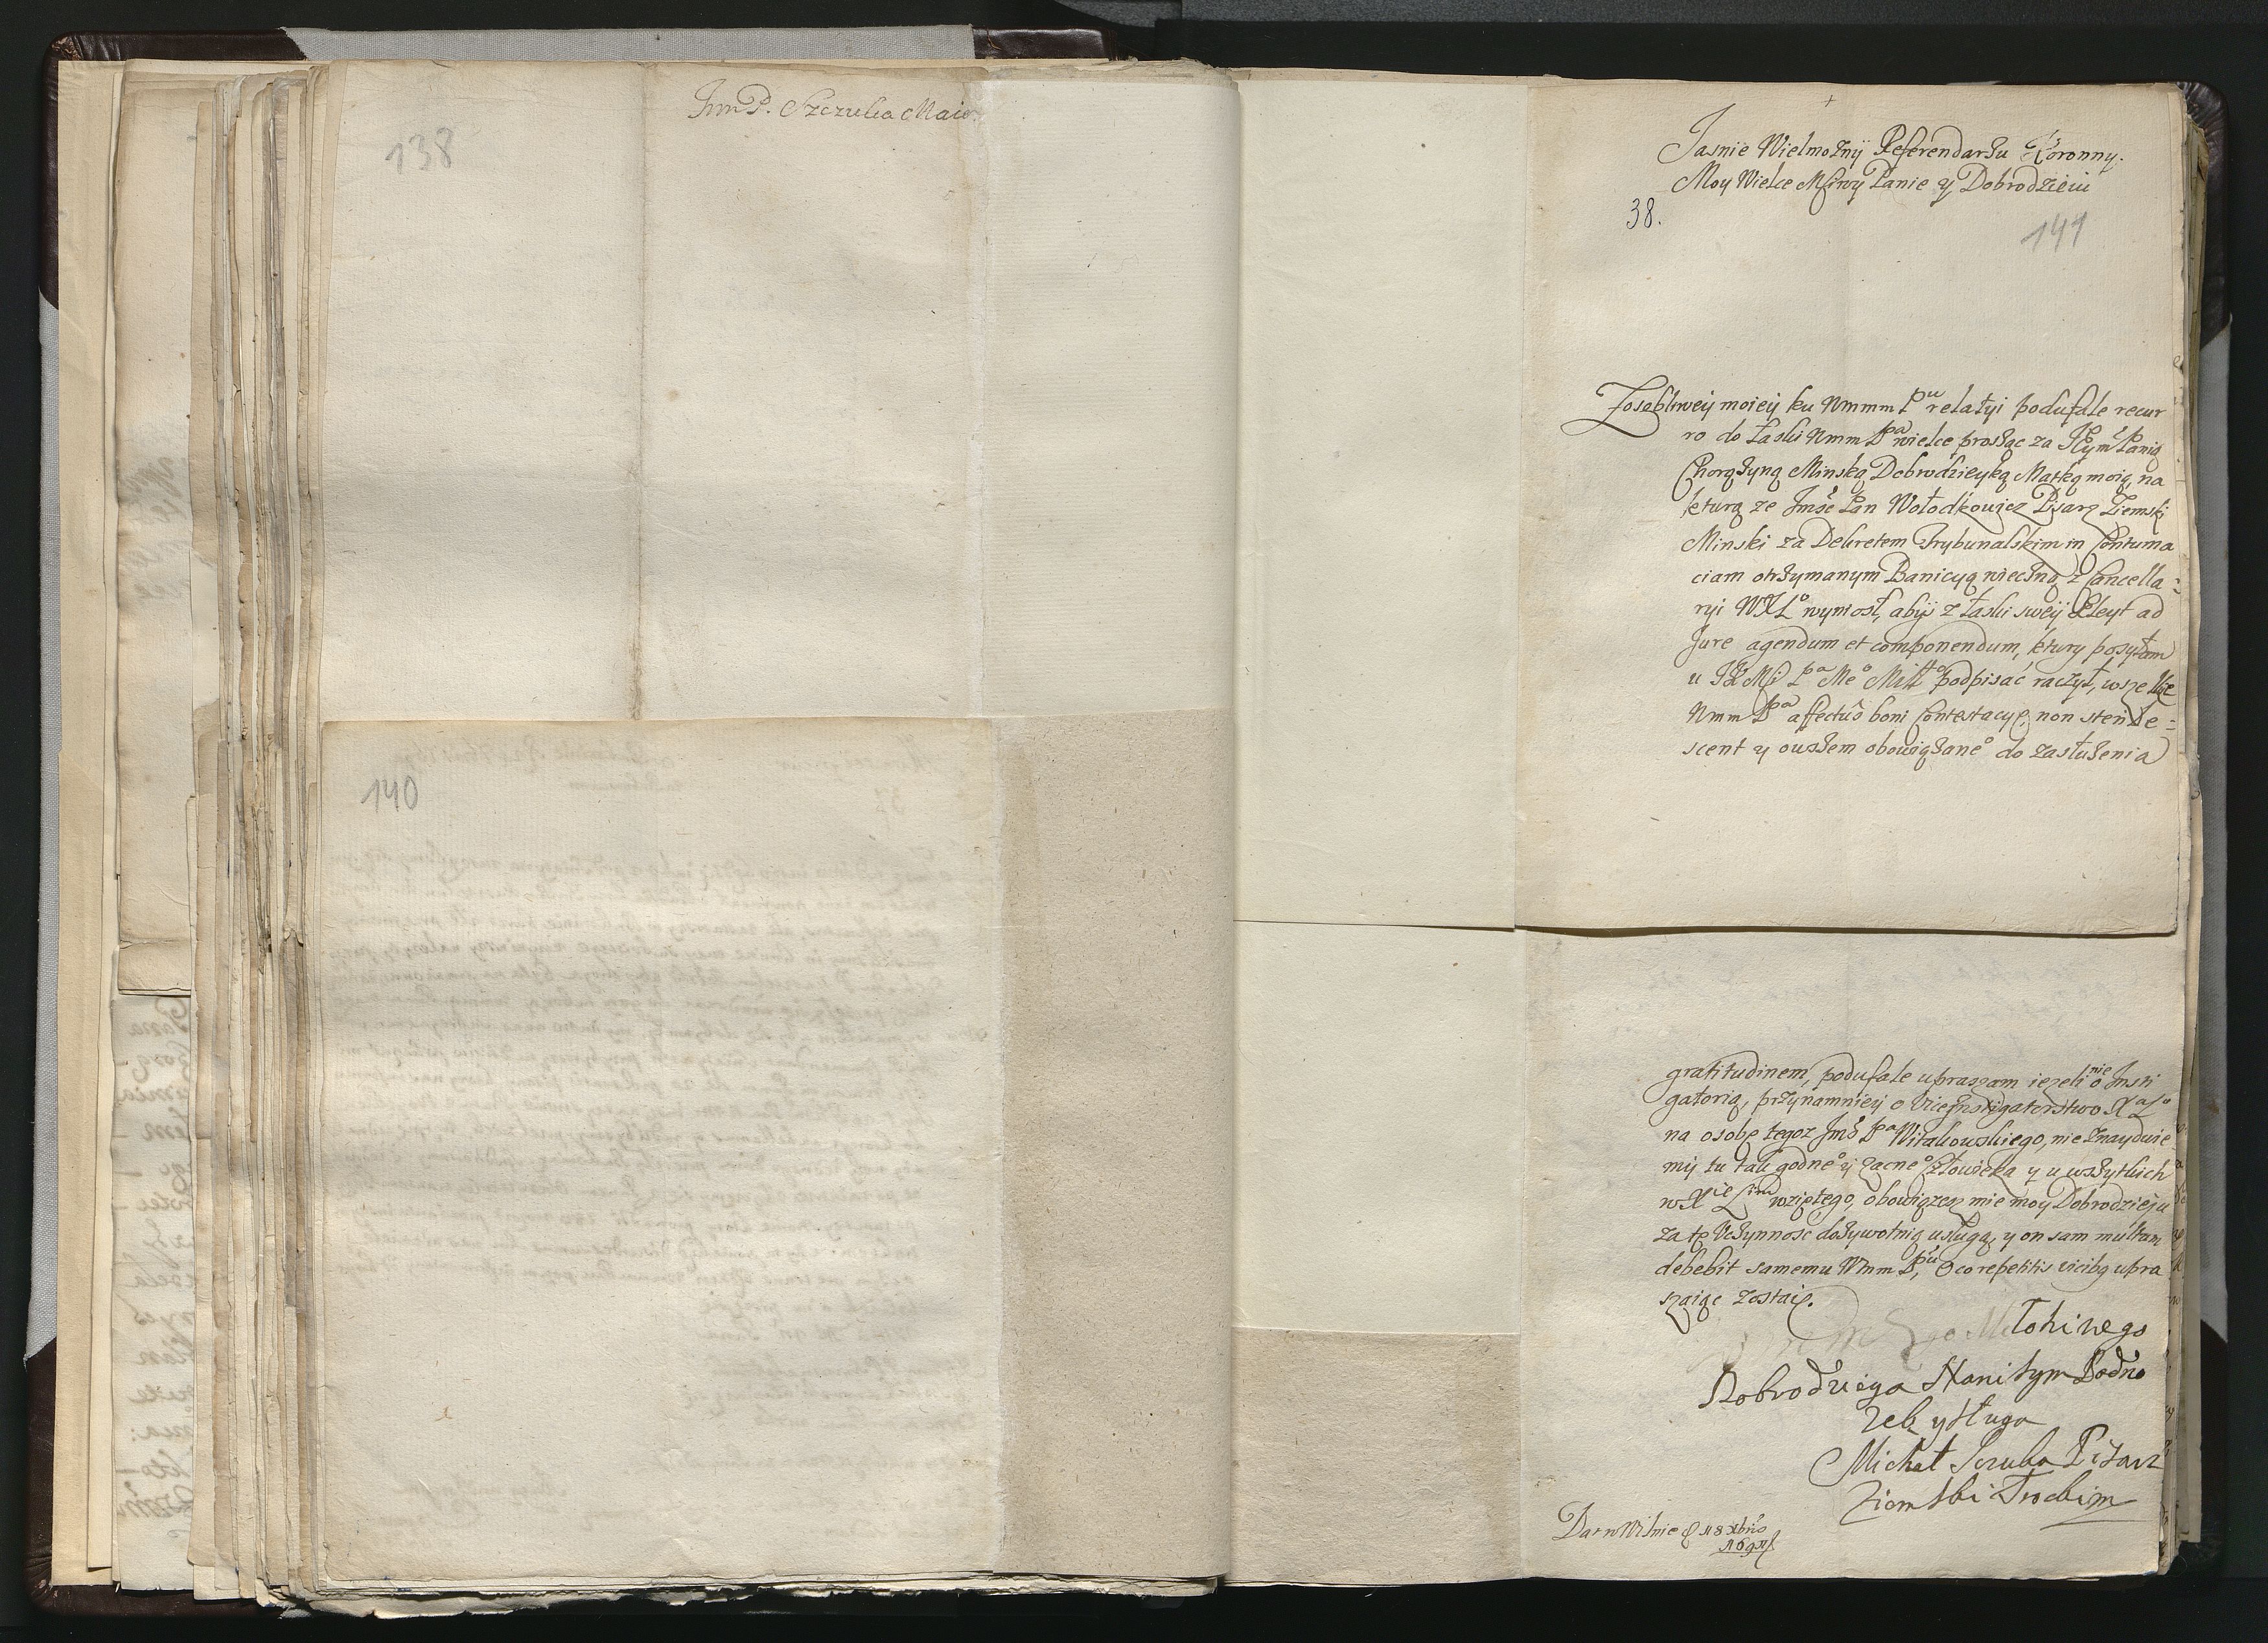 138
JmP. Szczuka Maior
140
Jasnie Wielmożny Referendarzu Koronny.
Moy Wielce Mściwy Panie y Dobrodzieiu
38.
141
Zosobliwey moiey ku Wmmm Pu relatyi podufale recur
ro do łaski Wmm Pa wielce prosząc za Panią
Chorążyną Minską Dobrodzieyką Matką moią, na
kturą ze Jmść Pan Wołodkowicz Pisarz Ziemski
Minski za Dekretem Trybunalskim in Contuma
ciam otrzymanym Banicyą wieczną z Cancella=
ryi WXLo wyniosł, abyś z łaski swey Gleyt ad
Jure agendum et componendum, ktury posyłam
u Pa Mo podpisać raczył, wszelkie
Wmm Pa affectus boni Contestacye non sterile=
scent y owszem obowiązane do zasłużenia
gratitudinem, podufale upraszam iezeli nie o Insti
gatorią, przynamniey o Viceinstigatorstwo XaLo
na osobę tegoz Jmo Pa Witakowskiego, nie znayduie
my tu tak godneo y zacneo Człowieka y u wszytkich
w Xie Lim wziętego, obowiązesz mie moy Dobrodzieju
za tę Uczynnosc dozywotnią usługą, y on sam multum
debebit samemu Wmm Pu, O co repetitis vicibq upra
szaiąc zostaię.
Dobrodzieja Nanizszym
y sługa
Michał Szczuka Pisarz
Ziemski Trocki mp
Dat w Wilnie d 18 Xbris